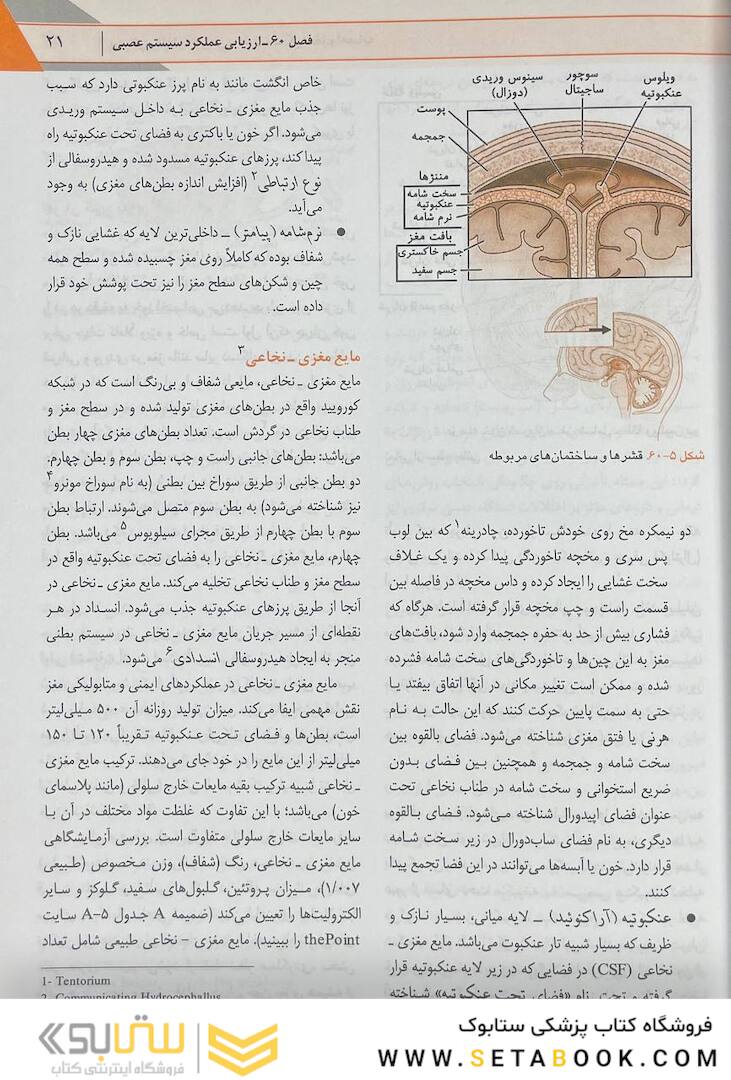 فصل ۶۰ـ ارزیابی عملکرد سیستم عصبی
۲۱
ویلوس
عنکبوتیه
سوچور
ساجیتال
سینوس وریدی
(دوزال)
پوست
جمجمه
مننژها
سخت شامه
عنکبوتیه
نرم شامه
بافت مغز
جسم خاکستری
جسم سفید
شکل ۵-۶۰. قشرها و ساختمان‌های مربوطه
دو نیمکره مخ روی خودش تاخورده، چادرینه۱ که بین لوب
پس سری و مخچه تاخوردگی پیدا کرده و یک غلاف
سخت غشایی را ایجاد کرده و داس مخچه در فاصله بین
قسمت راست و چپ مخچه قرار گرفته است. هرگاه که
فشاری بیش از حد به حفره جمجمه وارد شود، بافت‌های
مغز به این چین‌ها و تاخوردگی‌های سخت شامه فشرده
شده و ممکن است تغییر مکانی در آنها اتفاق بیفتد یا
حتی به سمت پایین حرکت کنند که این حالت به نام
هرنی یا فتق مغزی شناخته می‌شود. فضای بالقوه بین
سخت شامه و جمجمه و همچنین بین فضای بدون
ضریع استخوانی و سخت شامه در طناب نخاعی تحت
عنوان فضای اپیدورال شناخته می‌شود. فضای بالقوه
دیگری، به نام فضای ساب‌دورال در زیر سخت شامه
قرار دارد. خون یا آبسه‌ها می‌توانند در این فضا تجمع پیدا
کنند.
● عنکبوتیه (آراکنوئید) ـ لایه میانی، بسیار نازک و
ظریف که بسیار شبیه تار عنکبوت می‌باشد. مایع مغزی ـ
نخاعی (CSF) در فضایی که در زیر لایه عنکبوتیه قرار
گرفته و تحت نام «فضای تحت عنکبوتیه» شناخته
خاص انگشت مانند به نام پرز عنکبوتی دارد که سبب
جذب مایع مغزی ـ نخاعی به داخل سیستم وریدی
می‌شود. اگر خون یا باکتری به فضای تحت عنکبوتیه راه
پیدا کند، پرزهای عنکبوتیه مسدود شده و هیدروسفالی از
نوع ارتباطی۲ (افزایش اندازه بطن‌های مغزی) به وجود
می‌آید.
● نرم‌شامه (پیامتر) ـ داخلی‌ترین لایه که غشایی نازک و
شفاف بوده که کاملاً روی مغز چسبیده شده و سطح همه
چین و شکن‌های سطح مغز را نیز تحت پوشش خود قرار
داده است.
مایع مغزی ـ نخاعی۳
مایع مغزی ـ نخاعی، مایعی شفاف و بی‌رنگ است که در شبکه
کورویید واقع در بطن‌های مغزی تولید شده و در سطح مغز و
طناب نخاعی در گردش است. تعداد بطن‌های مغزی چهار بطن
می‌باشد: بطن‌های جانبی راست و چپ، بطن سوم و بطن چهارم.
دو بطن جانبی از طریق سوراخ بین بطنی (به نام سوراخ مونرو۴
نیز شناخته می‌شود) به بطن سوم متصل می‌شوند. ارتباط بطن
سوم با بطن چهارم از طریق مجرای سیلویوس۵ می‌باشد. بطن
چهارم، مایع مغزی ـ نخاعی را به فضای تحت عنکبوتیه واقع در
سطح مغز و طناب نخاعی تخلیه می‌کند. مایع مغزی ـ نخاعی در
آنجا از طریق پرزهای عنکبوتیه جذب می‌شود. انسداد در هر
نقطه‌ای از مسیر جریان مایع مغزی ـ نخاعی در سیستم بطنی
منجر به ایجاد هیدروسفالی انسدادی۶ می‌شود.
مایع مغزی ـ نخاعی در عملکردهای ایمنی و متابولیکی مغز
نقش مهمی ایفا می‌کند. میزان تولید روزانه آن ۵۰۰ میلی‌لیتر
است، بطن‌ها و فضای تحت عنکبوتیه تقریباً ۱۲۰ تا ۱۵۰
میلی‌لیتر از این مایع را در خود جای می‌دهند. ترکیب مایع مغزی
ـ نخاعی شبیه ترکیب بقیه مایعات خارج سلولی (مانند پلاسمای
خون) می‌باشد؛ با این تفاوت که غلظت مواد مختلف در آن با
سایر مایعات خارج سلولی متفاوت است. بررسی آزمایشگاهی
مایع مغزی ـ نخاعی، رنگ (شفاف)، وزن مخصوص (طبیعی
۱/۰۰۷)، میزان پروتئین، گلبول‌های سفید، گلوکز و سایر
الکترولیت‌ها را تعیین می‌کند (ضمیمه A جدول A-۵ سایت
thePoint را ببینید). مایع مغزی - نخاعی طبیعی شامل تعداد
1- Tentorium
2- Communicating Hydrocephallus
فروشگاه کتاب پزشکی ستابوک
WWW.SETABOOK.COM
ستابوک
فروشگاه اینترنتی کتاب